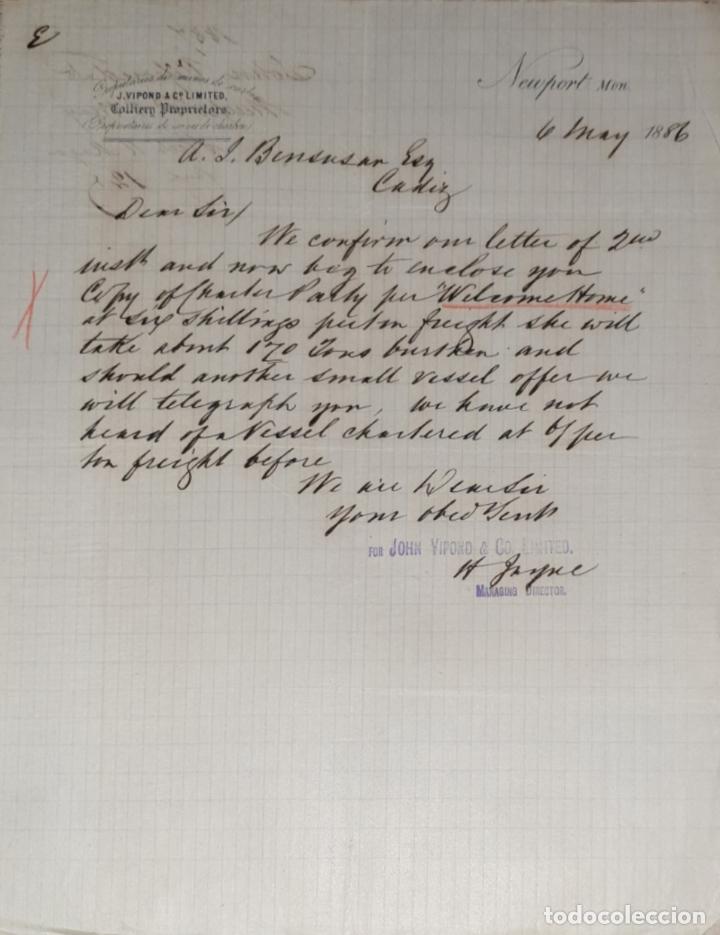 E
Propietarios de minas de
J. VIPOND & Co LIMITED,
Colliery Proprietors.
(Propietarios de minas de carbon)
Newport Mon.
6 May 1886
A. J. Bensusan Esq
Cadiz
Dear Sir/
We confirm our letter of 2nd
inst and now beg to enclose you
Copy of Charter Party per "Welcome Home"
at six shillings per ton freight she will
take about 170 Tons burthen and
should another small vessel offer we
will telegraph you, we have not
heard of a Vessel chartered at 6/ per
ton freight before
We are Dear Sir
Your obed Servts
FOR JOHN VIPOND & CO. LIMITED.
H Jayne
MANAGING DIRECTOR.
todocoleccion.net